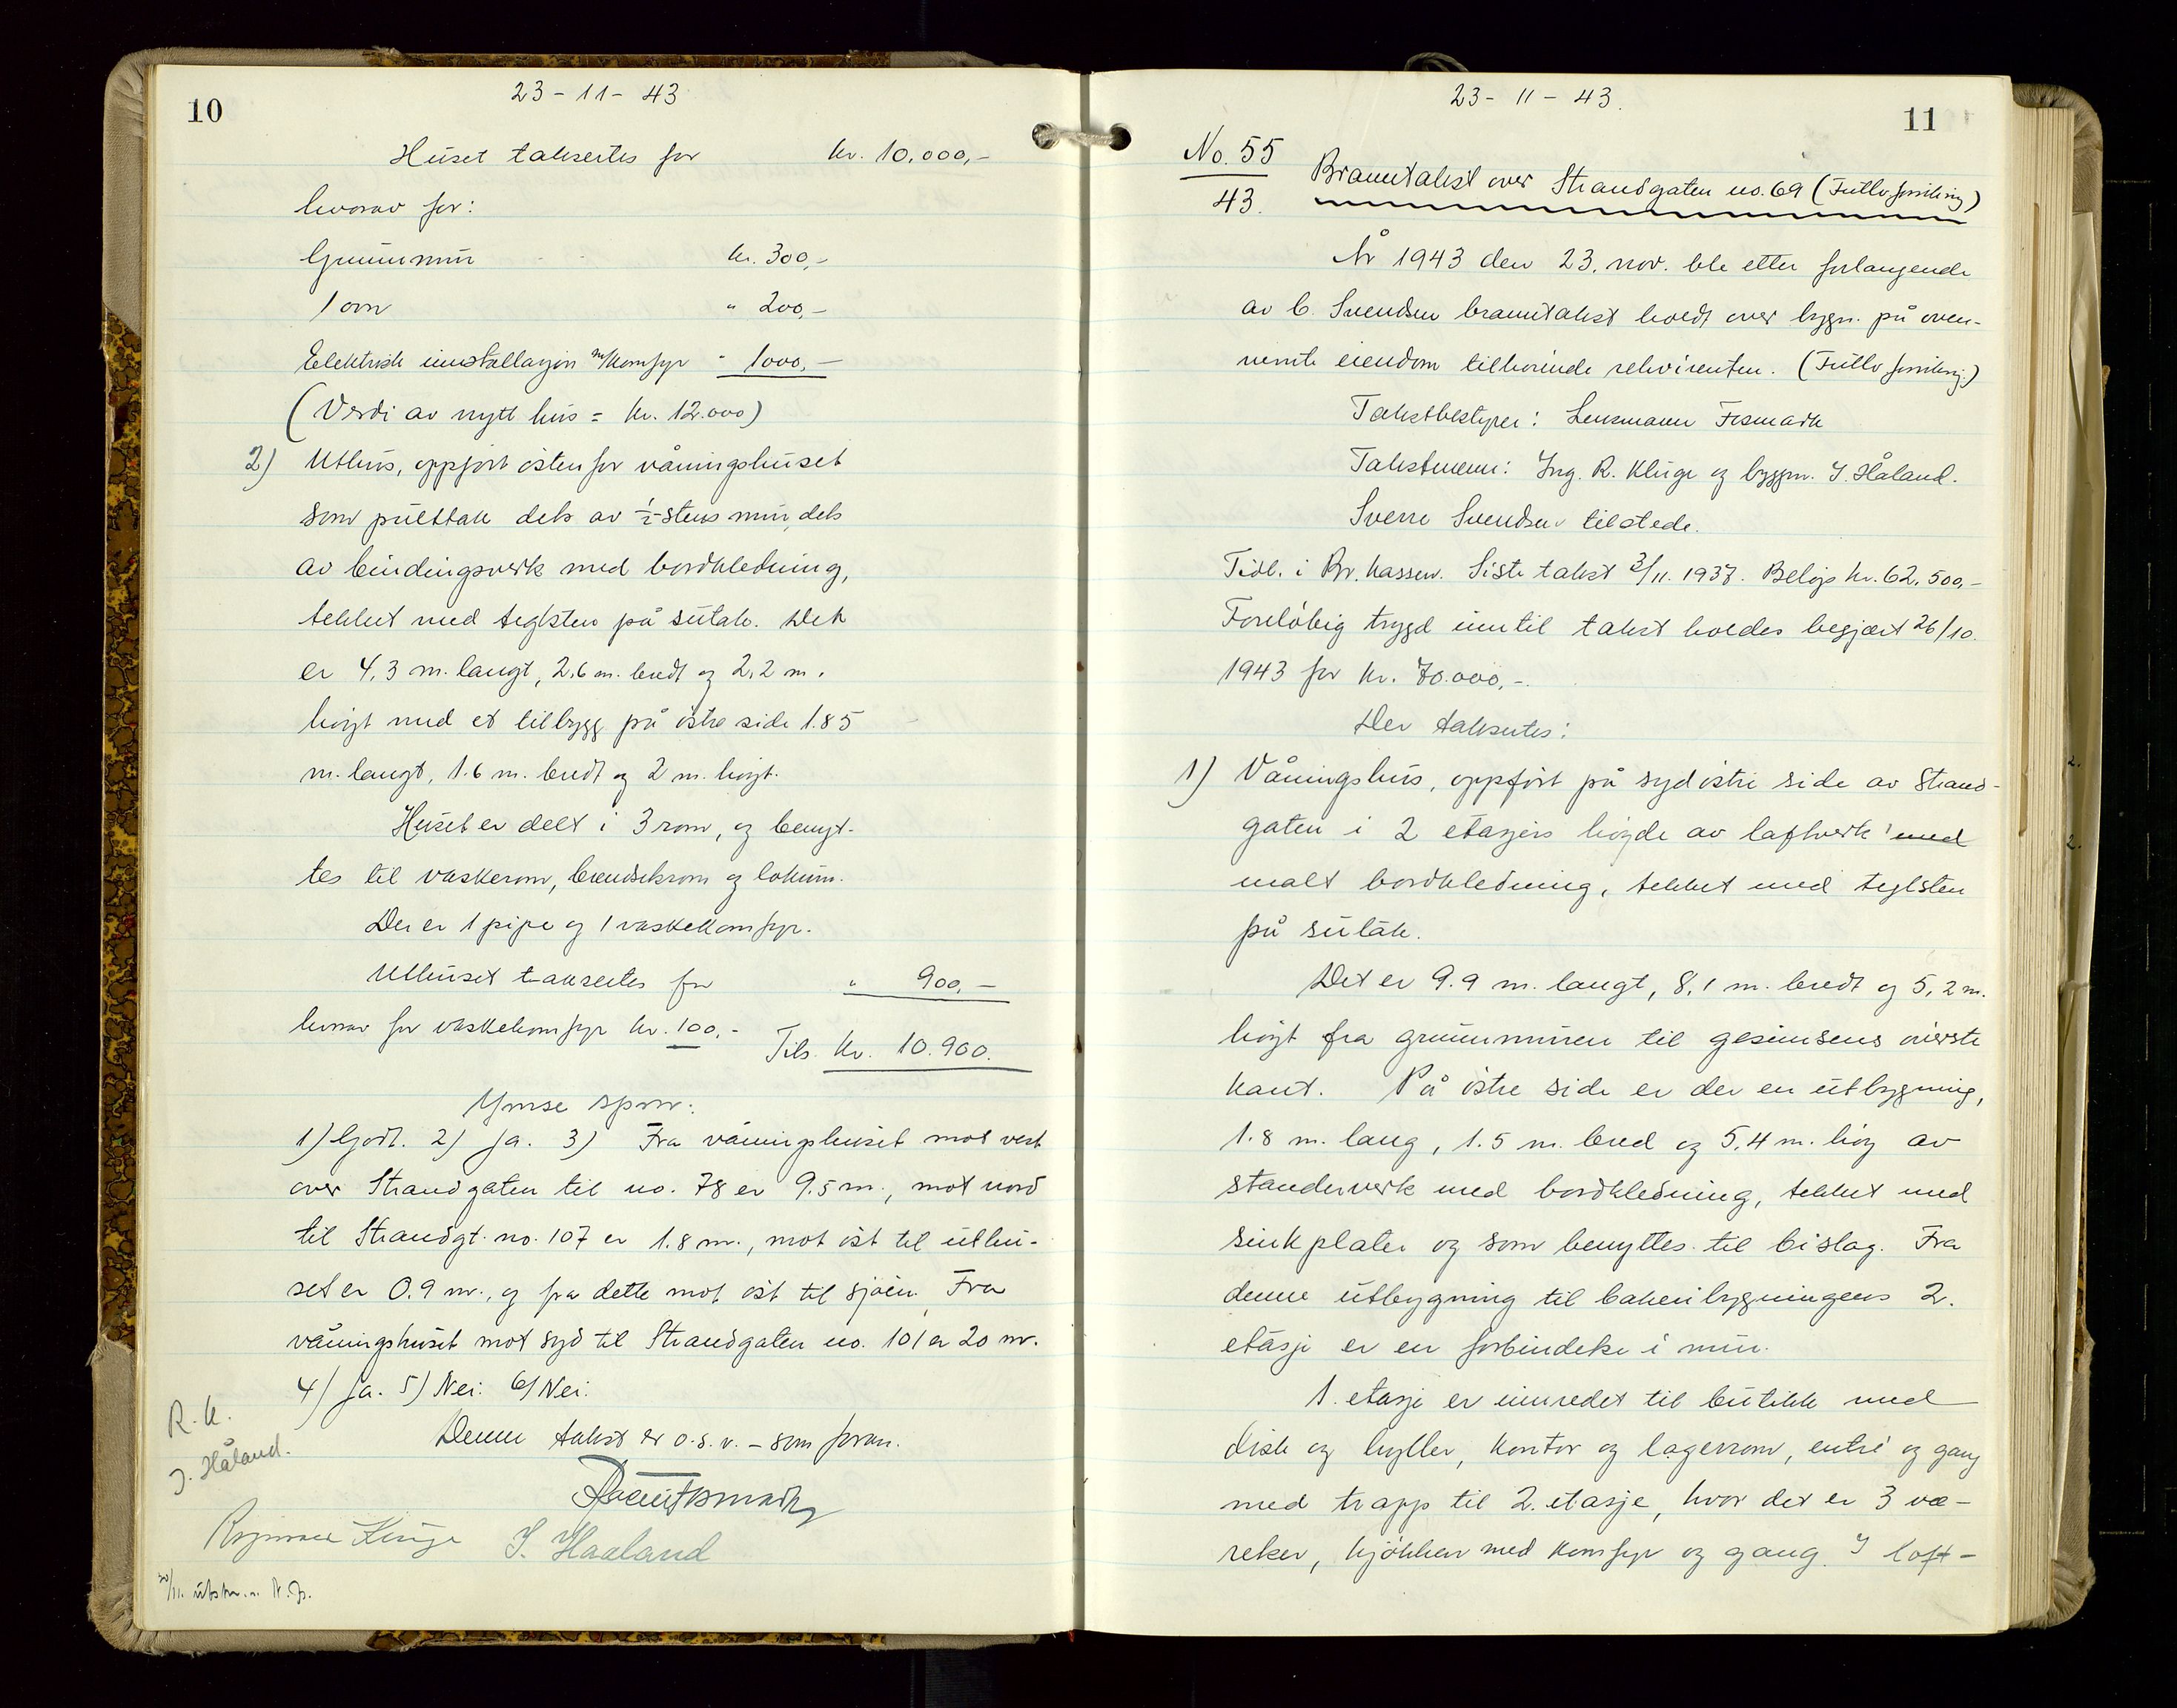 10
23-11-43
Huset takseres for kr. 10,000,-
hvorav for:
Grunnmur kr. 300,-
1 ovn " 200,-
Elektrisk installasjon m/komfyr " 1000,-
(Verdi av nytt hus = kr. 12.000)
2) Uthus, oppført østenfor våningshuset
som pulttak dels av ½-stens mur, dels
av bindingsverk med bordkledning,
tekket med teglsten på sutak. Det
er 4,3 m. langt, 2,6 m. bredt og 2,2 m.
høyt med et tilbygg på østre side 1.85
m. langt, 1.6 m. bredt og 2 m. høyt.
Huset er delt i 3 rom, og benyt-
tes til vaskerom, brendselsrom og lokum.
Der er 1 pipe og 1 vaskekomfyr.
Uthuset takseres for " 900,-
hvorav for vaskekomfyr kr. 100,-
Tils. kr. 10.900.
Ymse spm:
1) Godt. 2) Ja. 3) Fra våningshuset mot vest
over Strandgaten til no. 78 er 9.5 m., mot nord
til Strandgt. no. 107 er 1.8 m., mot øst til uthu-
set er 0.9 m., og fra dette mot øst til sjøen. Fra
våningshuset mot syd til Strandgaten no. 101 er 20 m.
4) Ja. 5) Nei. 6) Nei.
Denne takst er o.s.v. - som foran.
R.K.
J. Håland.
J. Haaland
30/11. utskr. n. N. Js.
11
23-11-43.
No. 55
43.
Branntakst over Strandgaten no. 69 (Frittv. forsikring)
År 1943 den 23. nov. ble etter forlangende
av C. Svendsen branntakst holdt over bygn. på oven-
nevnte eiendom tilhørende rekvirenten. (Frittv. forsikring.)
Takstbestyrer: Lensmann Fismark
Takstmenn: Ing. R. Kluge og byggm. J. Håland.
Sverre Svendsen tilstede.
Tidl. i Br. kassen. Siste takst 3/11. 1937. Beløp kr. 62,500,-
Foreløbig trygd inntil takst holdes begjært 26/10.
1943 for kr. 70.000,-.
Der takseres:
1) Våningshus, oppført på sydøstre side av Strand-
gaten i 2 etasjers høyde av laftverk med
malt bordkledning, tekket med teglsten
på sutak.
Det er 9.9 m. langt, 8,1 m. bredt og 5,2 m.
høyt fra grunnmuren til gesimsens øverste
kant. På østre side er der en utbygning,
1.8 m. lang, 1.5 m. bred og 5,4 m. høy av
standerverk med bordkledning, tekket med
sinkplater og som benyttes til bislag. Fra
denne utbygning til bakeribygningens 2.
etasje er en forbindelse i mur.
1. etasje er innredet til butikk med
disk og hyller, kontor og lagerrom, entré og gang
med trapp til 2. etasje, hvor det er 3 væ-
relser, kjøkken med komfyr og gang. I loft-